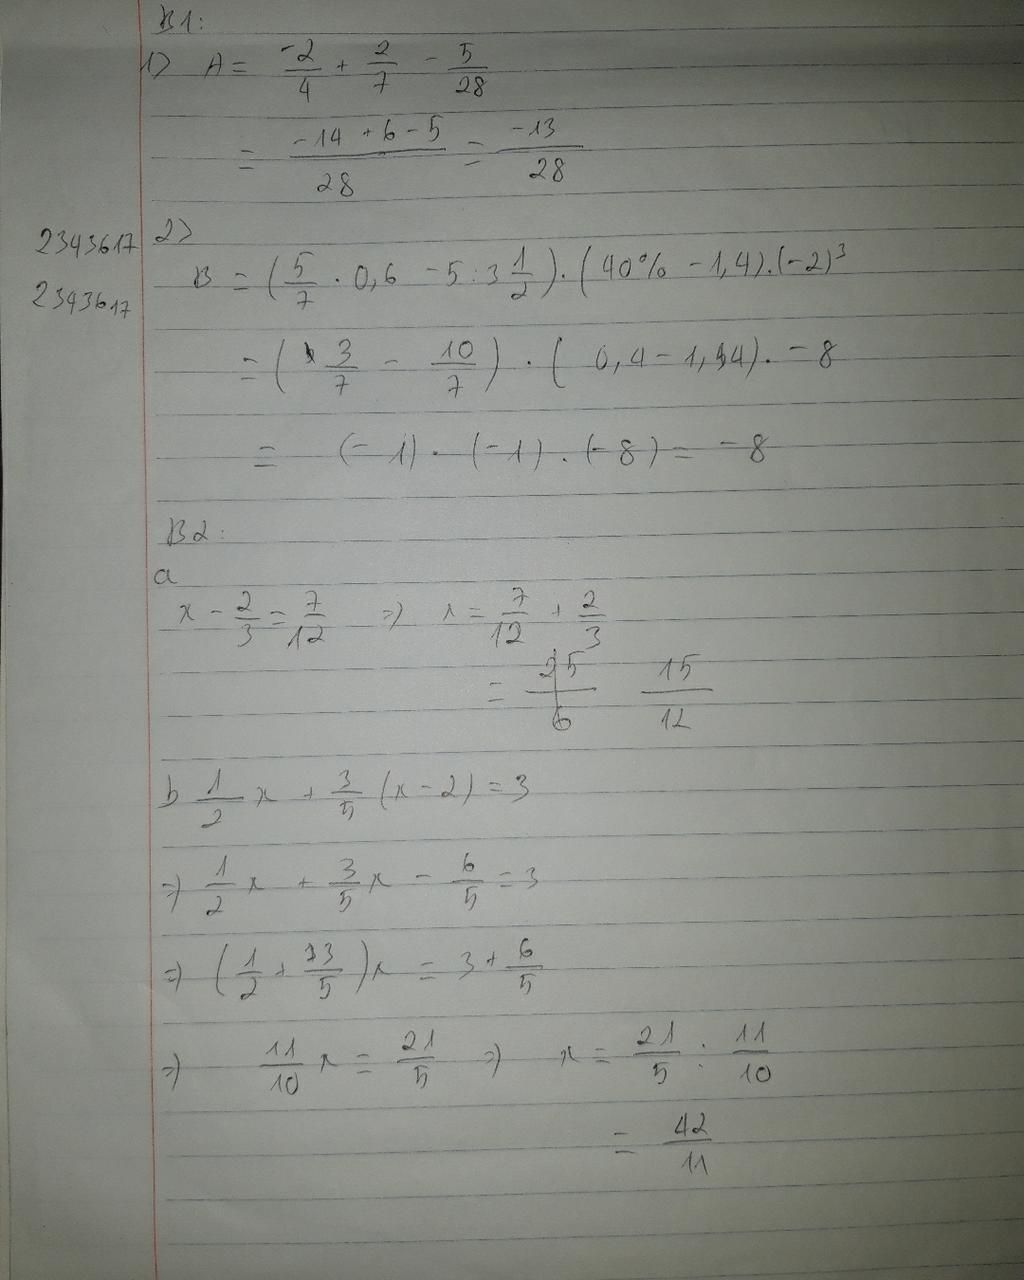 B1:
1) A = -2/4 + 2/7 - 5/28
= (-14 + 6 - 5)/28 = -13/28
2343617
2)
B = (5/7 . 0,6 - 5 : 3 1/2) . (40% - 1,4) . (-2)³
2343617
= (3/7 - 10/7) . (0,4 - 1,4) . -8
= (-1) . (-1) . (-8) = -8
B2:
a
x - 2/3 = 7/12 => x = 7/12 + 2/3
= 25/6 15/12
b 1/2 x + 3/5 (x - 2) = 3
=> 1/2 x + 3/5 x - 6/5 = 3
=> (1/2 + 3/5) x = 3 + 6/5
=> 11/10 x = 21/5 => x = 21/5 : 11/10
= 42/11